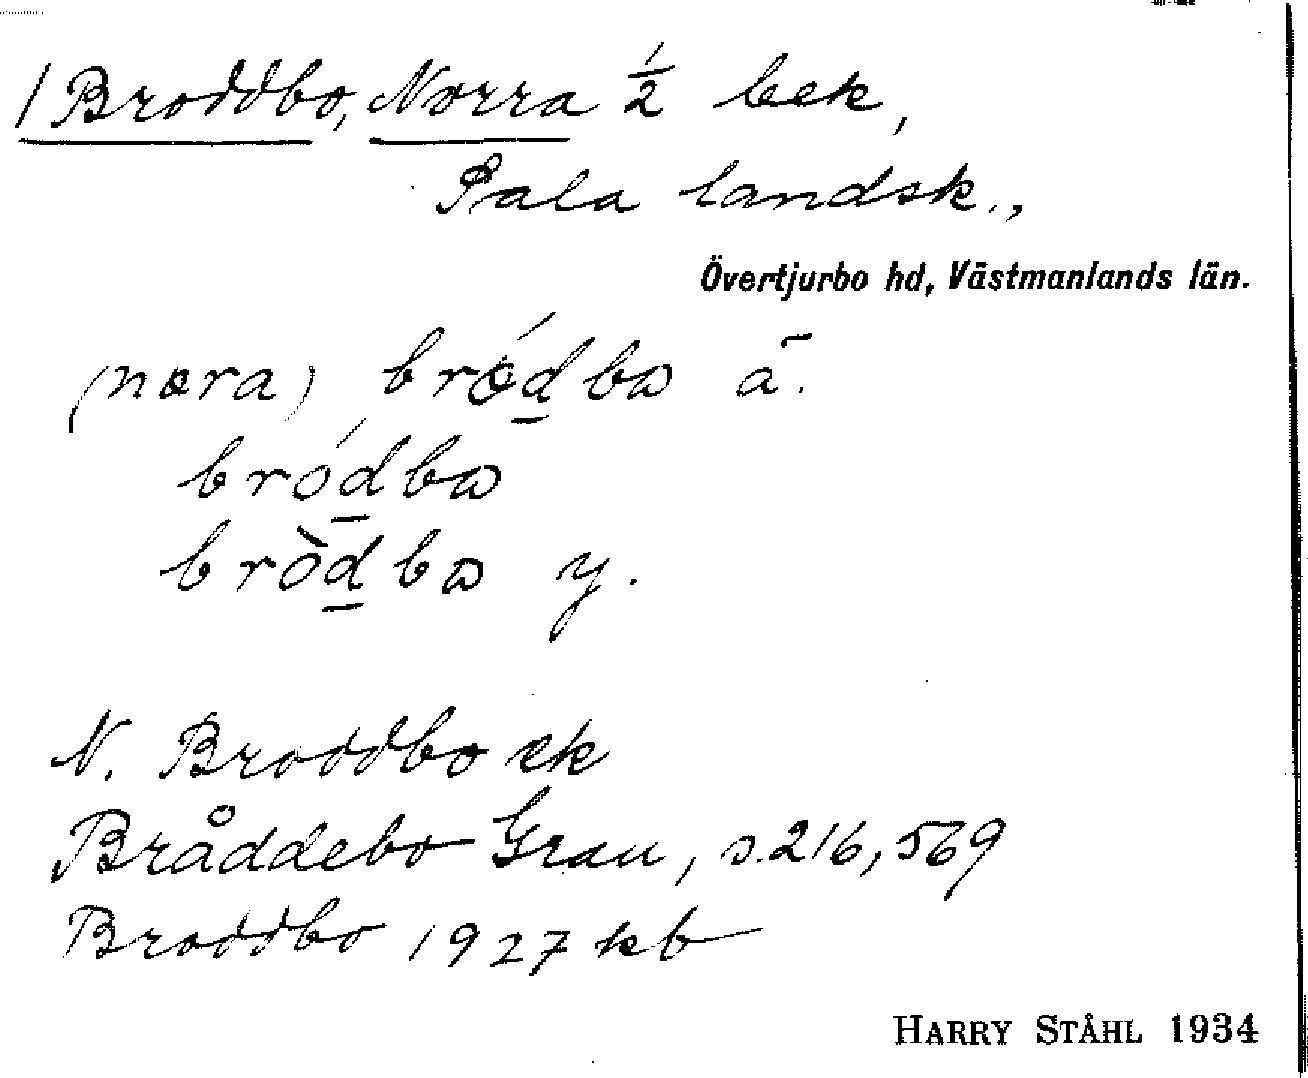 / Broddbo, Norra ½ bek,
Sala landsk.,
Övertjurbo hd, Västmanlands län.
(nœra) brɵ́d̲bω ä.
bród̲bω
bròd̲bω y.
N. Broddbo ek
Bråddebo Grau, s. 216, 569
Broddbo 1927 kb
HARRY STÅHL 1934